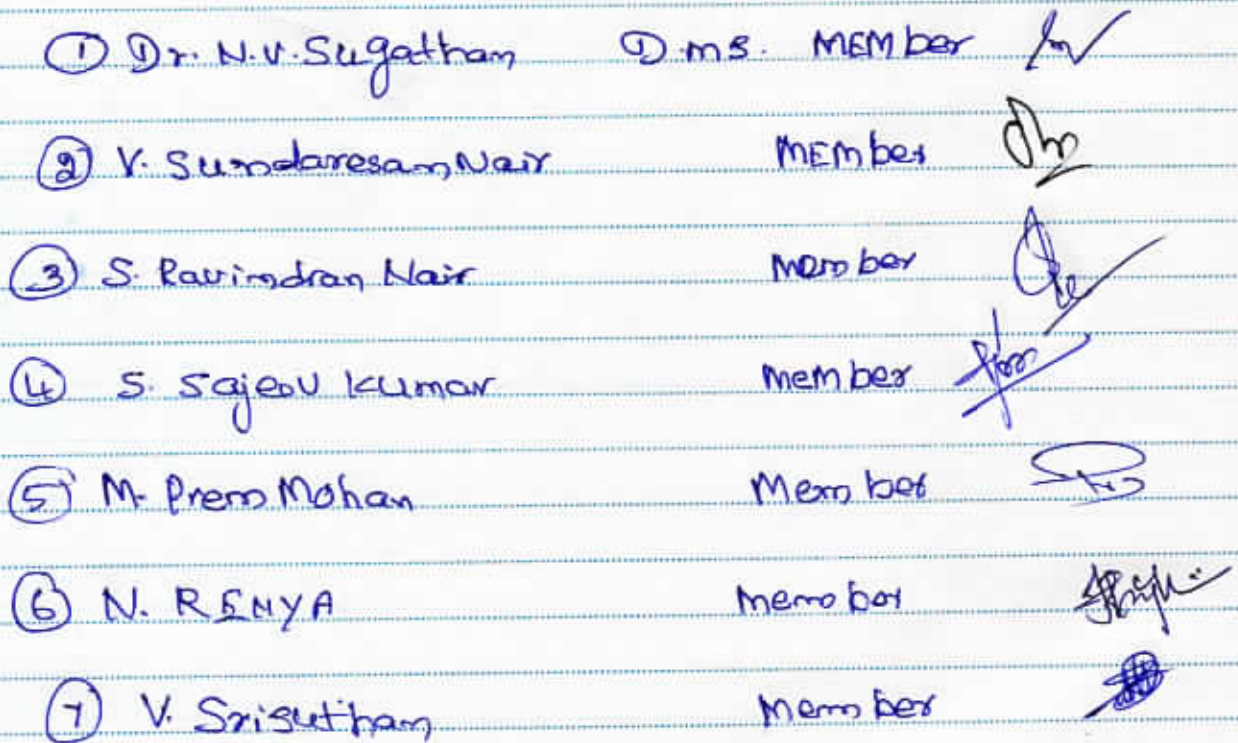 ① Dr. N.V. Sugathan D.m.s. MEMber
② V. Sundaresan Nair MEMber
③ S. Ravindran Nair member
④ S. Sajeev Kumar member
⑤ M. Prem Mohan Member
⑥ N. RENYA member
⑦ V. Srisuthan Member